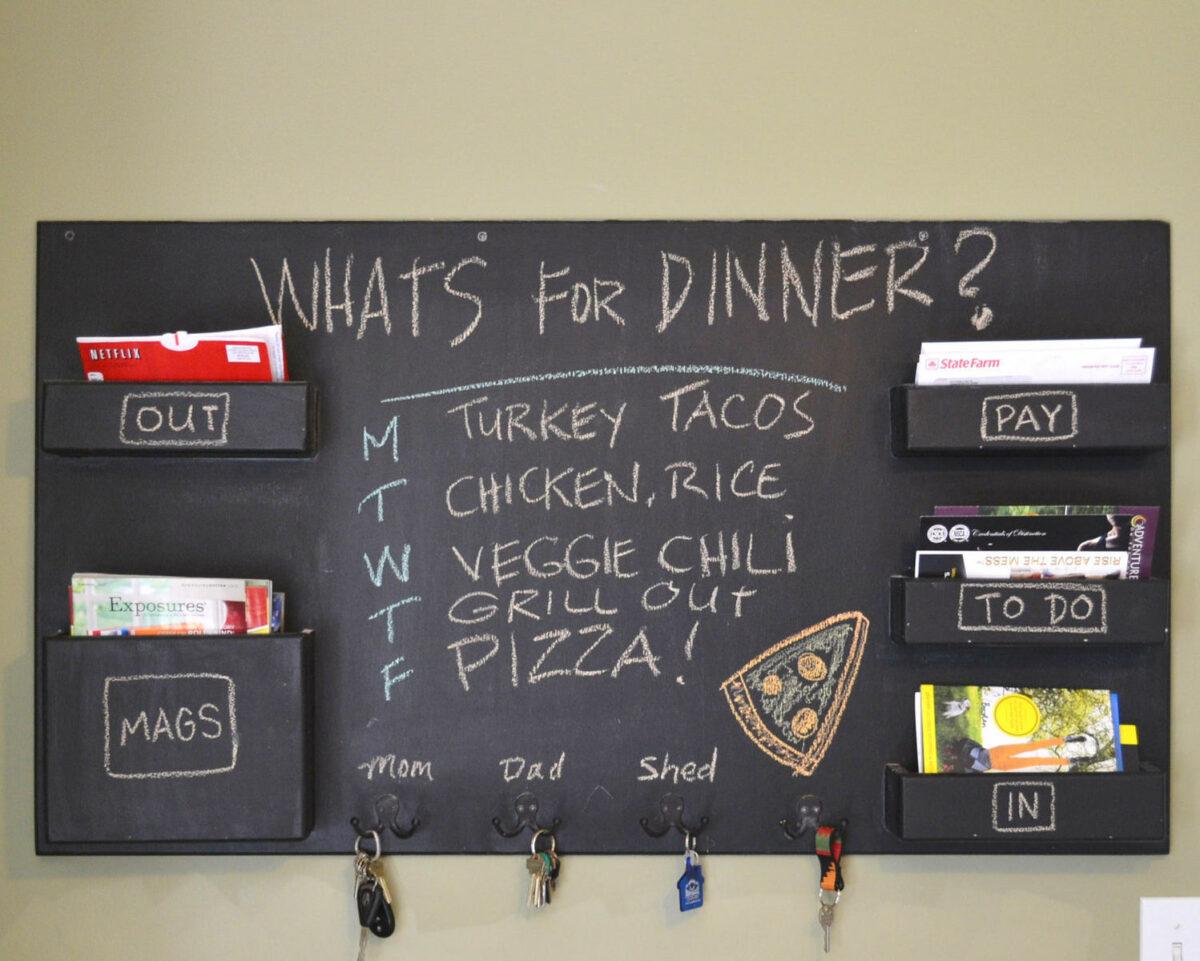 WHATS FOR DINNER?
NETFLIX
OUT
StateFarm
PAY
M TURKEY TACOS
T CHICKEN, RICE
W VEGGIE CHILI
T GRILL OUT
F PIZZA!
Credentials of Distinction
ADVENTURE
RISE ABOVE THE MESS
TO DO
Exposures
MAGS
IN
Mom
Dad
Shed